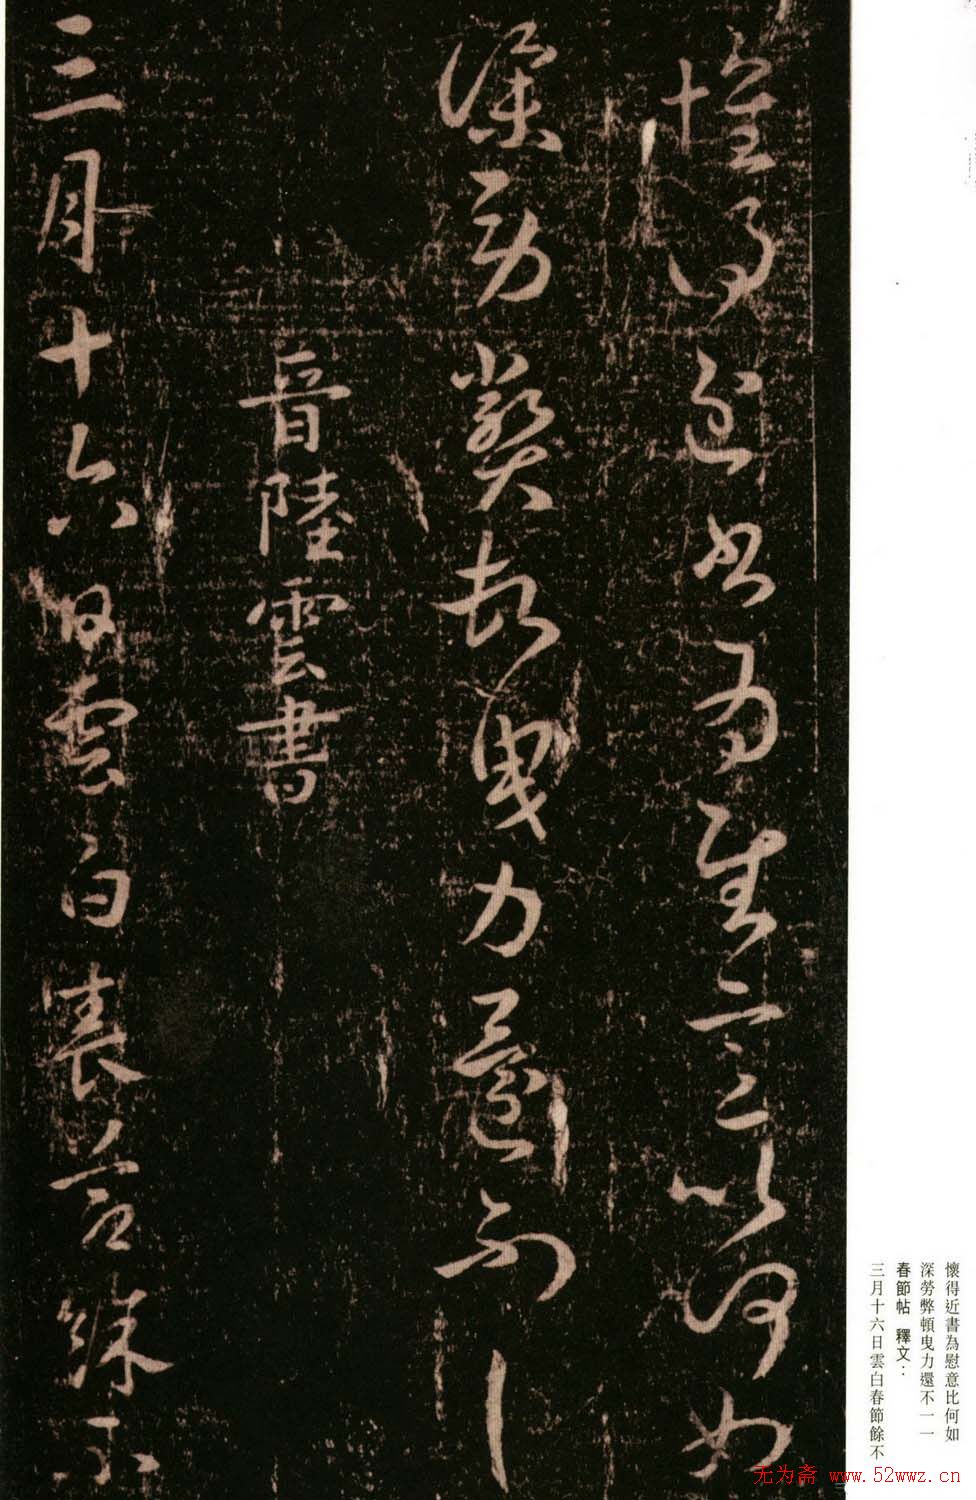 懷得近書為慰意比何如
深勞弊頓曳力還不一一
晉陸雲書
三月十六日雲白春節餘不
懷得近書為慰意比何如
深勞弊頓曳力還不一一
春節帖 釋文：
三月十六日雲白春節餘不
无为斋 www.52wwz.cn